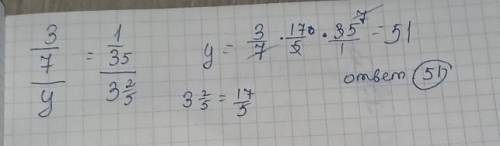 3/7 / y = 1/35 / 3 2/5
y = 3/7 · 17/5 · 35/1 7 = 51
3 2/5 = 17/5
ответ 51